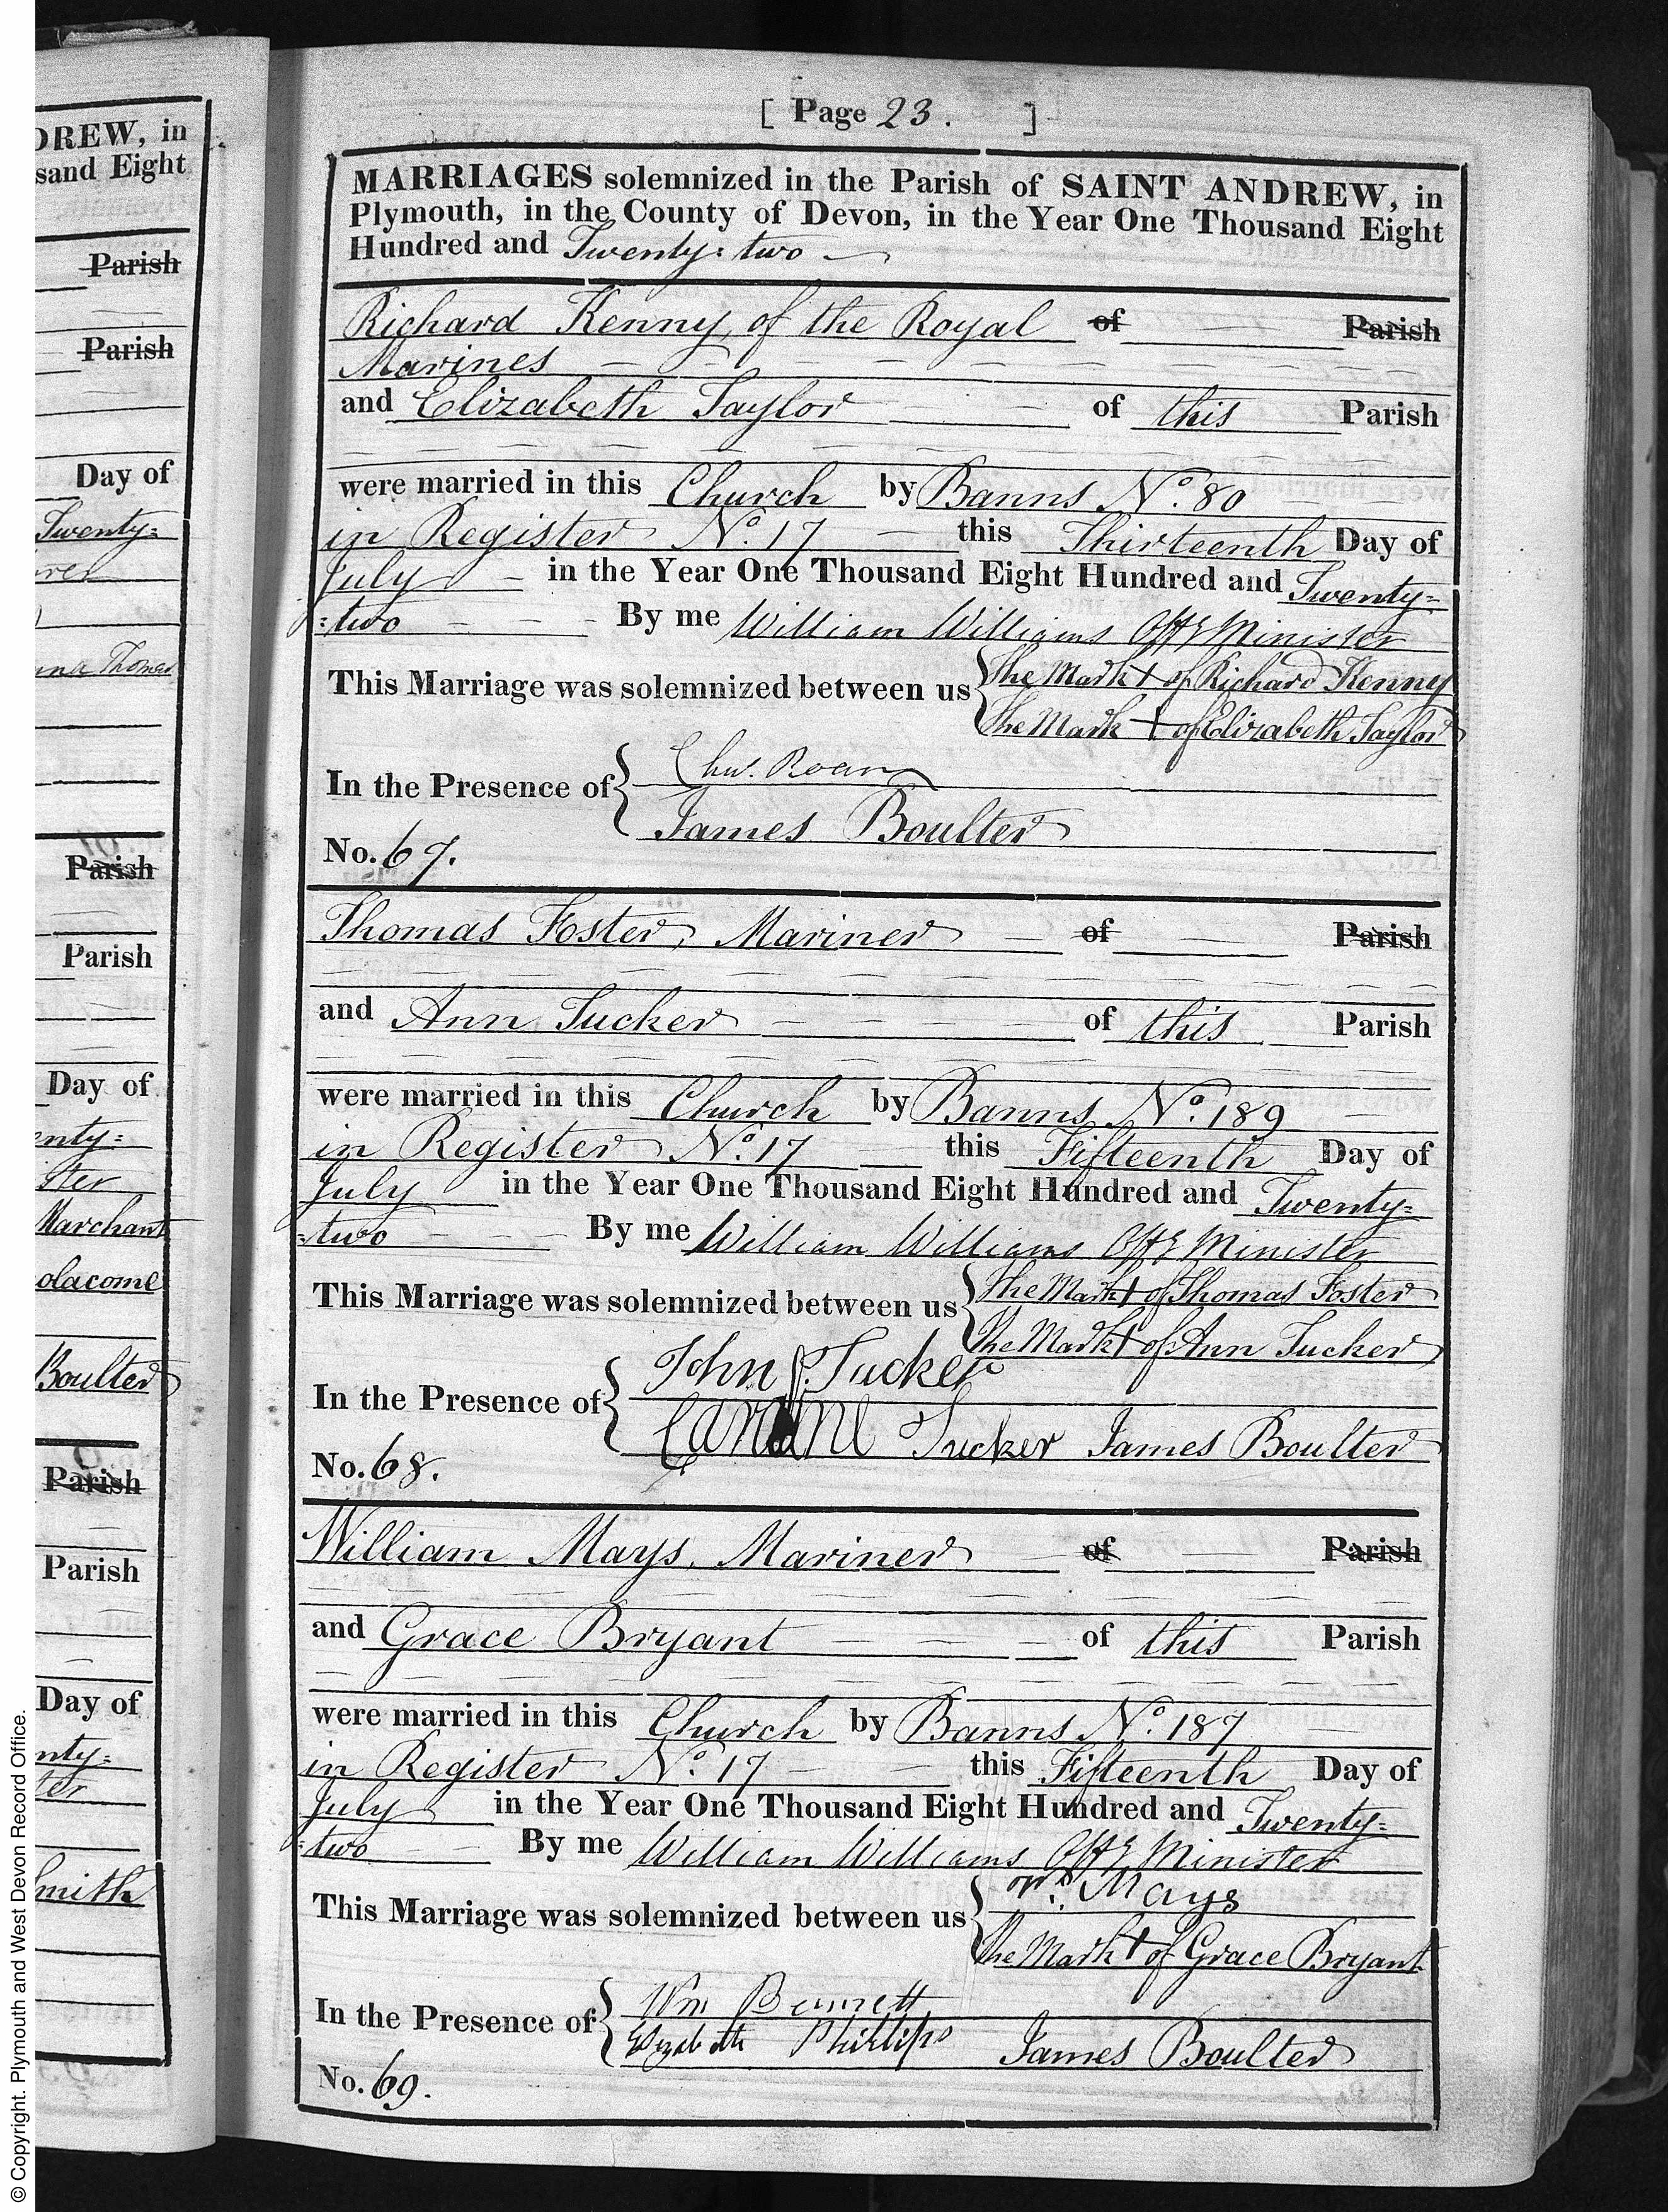 [ Page 23. ]
MARRIAGES solemnized in the Parish of SAINT ANDREW, in
Plymouth, in the County of Devon, in the Year One Thousand Eight
Hundred and Twenty=two
Richard Kenny, of the Royal of Parish
Marines
and Elizabeth Taylor of this Parish
were married in this Church by Banns No. 80
in Register No. 17 this Thirteenth Day of
July in the Year One Thousand Eight Hundred and Twenty=
=two By me William Williams Offg Minister
This Marriage was solemnized between us
The Mark + of Richard Kenny
The Mark + of Elizabeth Taylor
In the Presence of
Roan
James Boulter
No. 67.
Thomas Foster, Mariner of Parish
and Ann Tucker of this Parish
were married in this Church by Banns No. 189
in Register No. 17 this Fifteenth Day of
July in the Year One Thousand Eight Hundred and Twenty=
=two By me William Williams Offg Minister
This Marriage was solemnized between us
The Mark + of Thomas Foster
The Mark + of Ann Tucker
In the Presence of
John Tucker
Caroline Tucker James Boulter
No. 68.
William Mays, Mariner of Parish
and Grace Bryant of this Parish
were married in this Church by Banns No. 187
in Register No. 17 this Fifteenth Day of
July in the Year One Thousand Eight Hundred and Twenty=
=two By me William Williams Offg Minister
This Marriage was solemnized between us
Wm. Mays
The Mark + of Grace Bryant
In the Presence of
Wm Bennett
Elizabeth Phillips James Boulter
No. 69.
DREW, in
sand Eight
Parish
Parish
Day of
Twenty=
Thomas
Parish
Parish
Day of
enty=
ster
Marchant
olacome
Boulter
Parish
Parish
Day of
nty=
ter
Smith
© Copyright. Plymouth and West Devon Record Office.